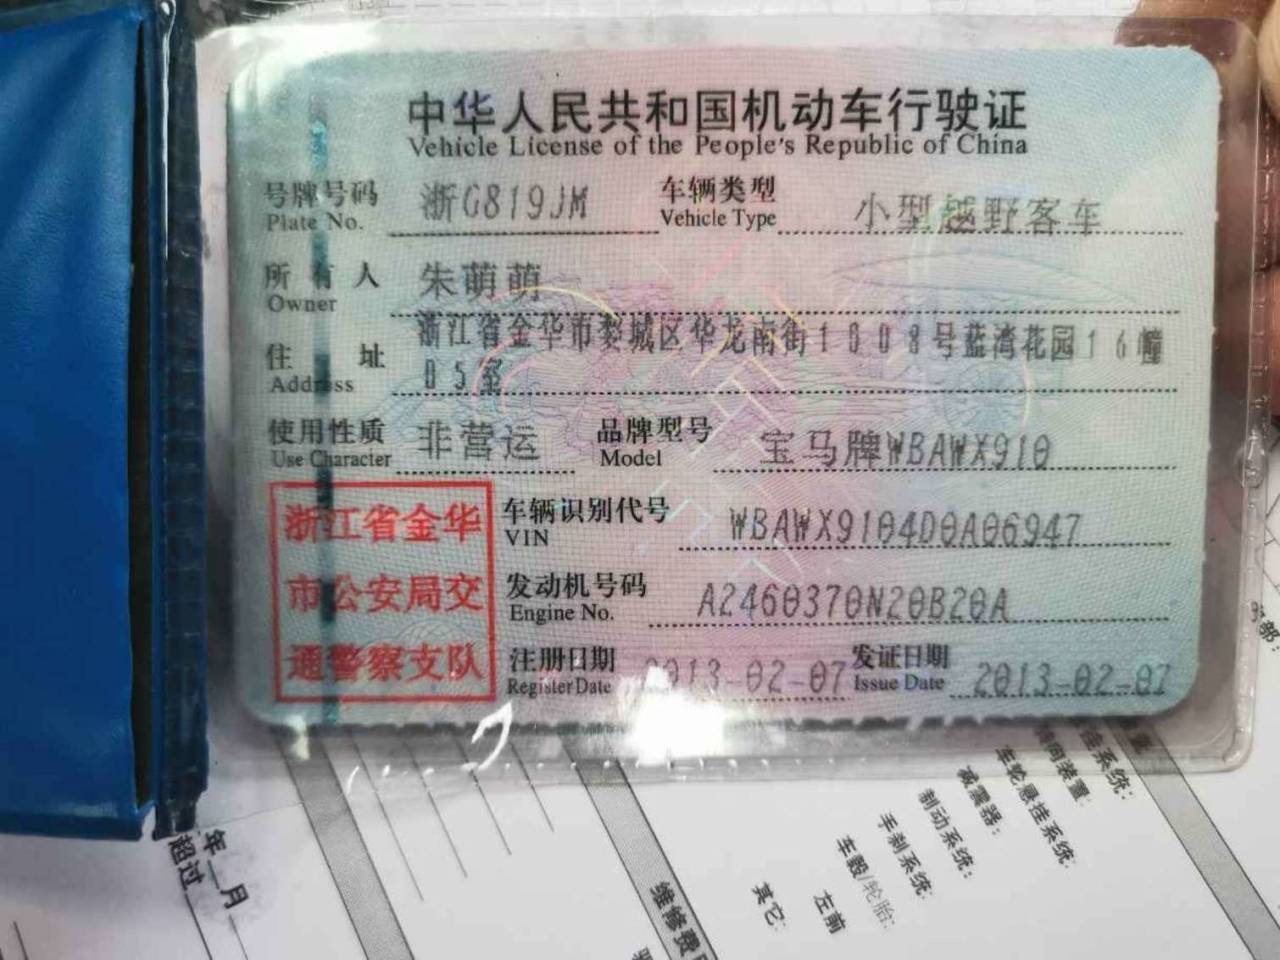 中华人民共和国机动车行驶证
Vehicle License of the People's Republic of China
号牌号码 浙G819JM 车辆类型 小型越野客车
Plate No. Vehicle Type
所有人 朱萌萌
Owner
住址 浙江省金华市婺城区华龙南街1808号蓝湾花园16幢
Address 05室
使用性质 非营运 品牌型号 宝马牌WBAWX910
Use Character Model
浙江省金华 车辆识别代号 WBAWX9104D0A06947
VIN
市公安局交 发动机号码 A2460370N20B20A
Engine No.
通警察支队 注册日期 2013-02-07 发证日期 2013-02-07
Register Date Issue Date
年 月
超过
维修费用
其它:
左前
车毂/轮胎:
手刹系统:
制动系统:
减震器:
车轮悬挂系统:
转向装置: